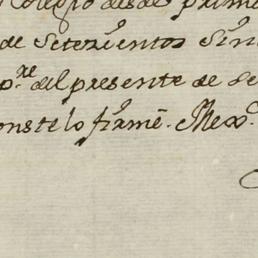 Colegio desde primе
de Setezientos Sin
p.re del presente de Se
onste lo firmé. Mexo.